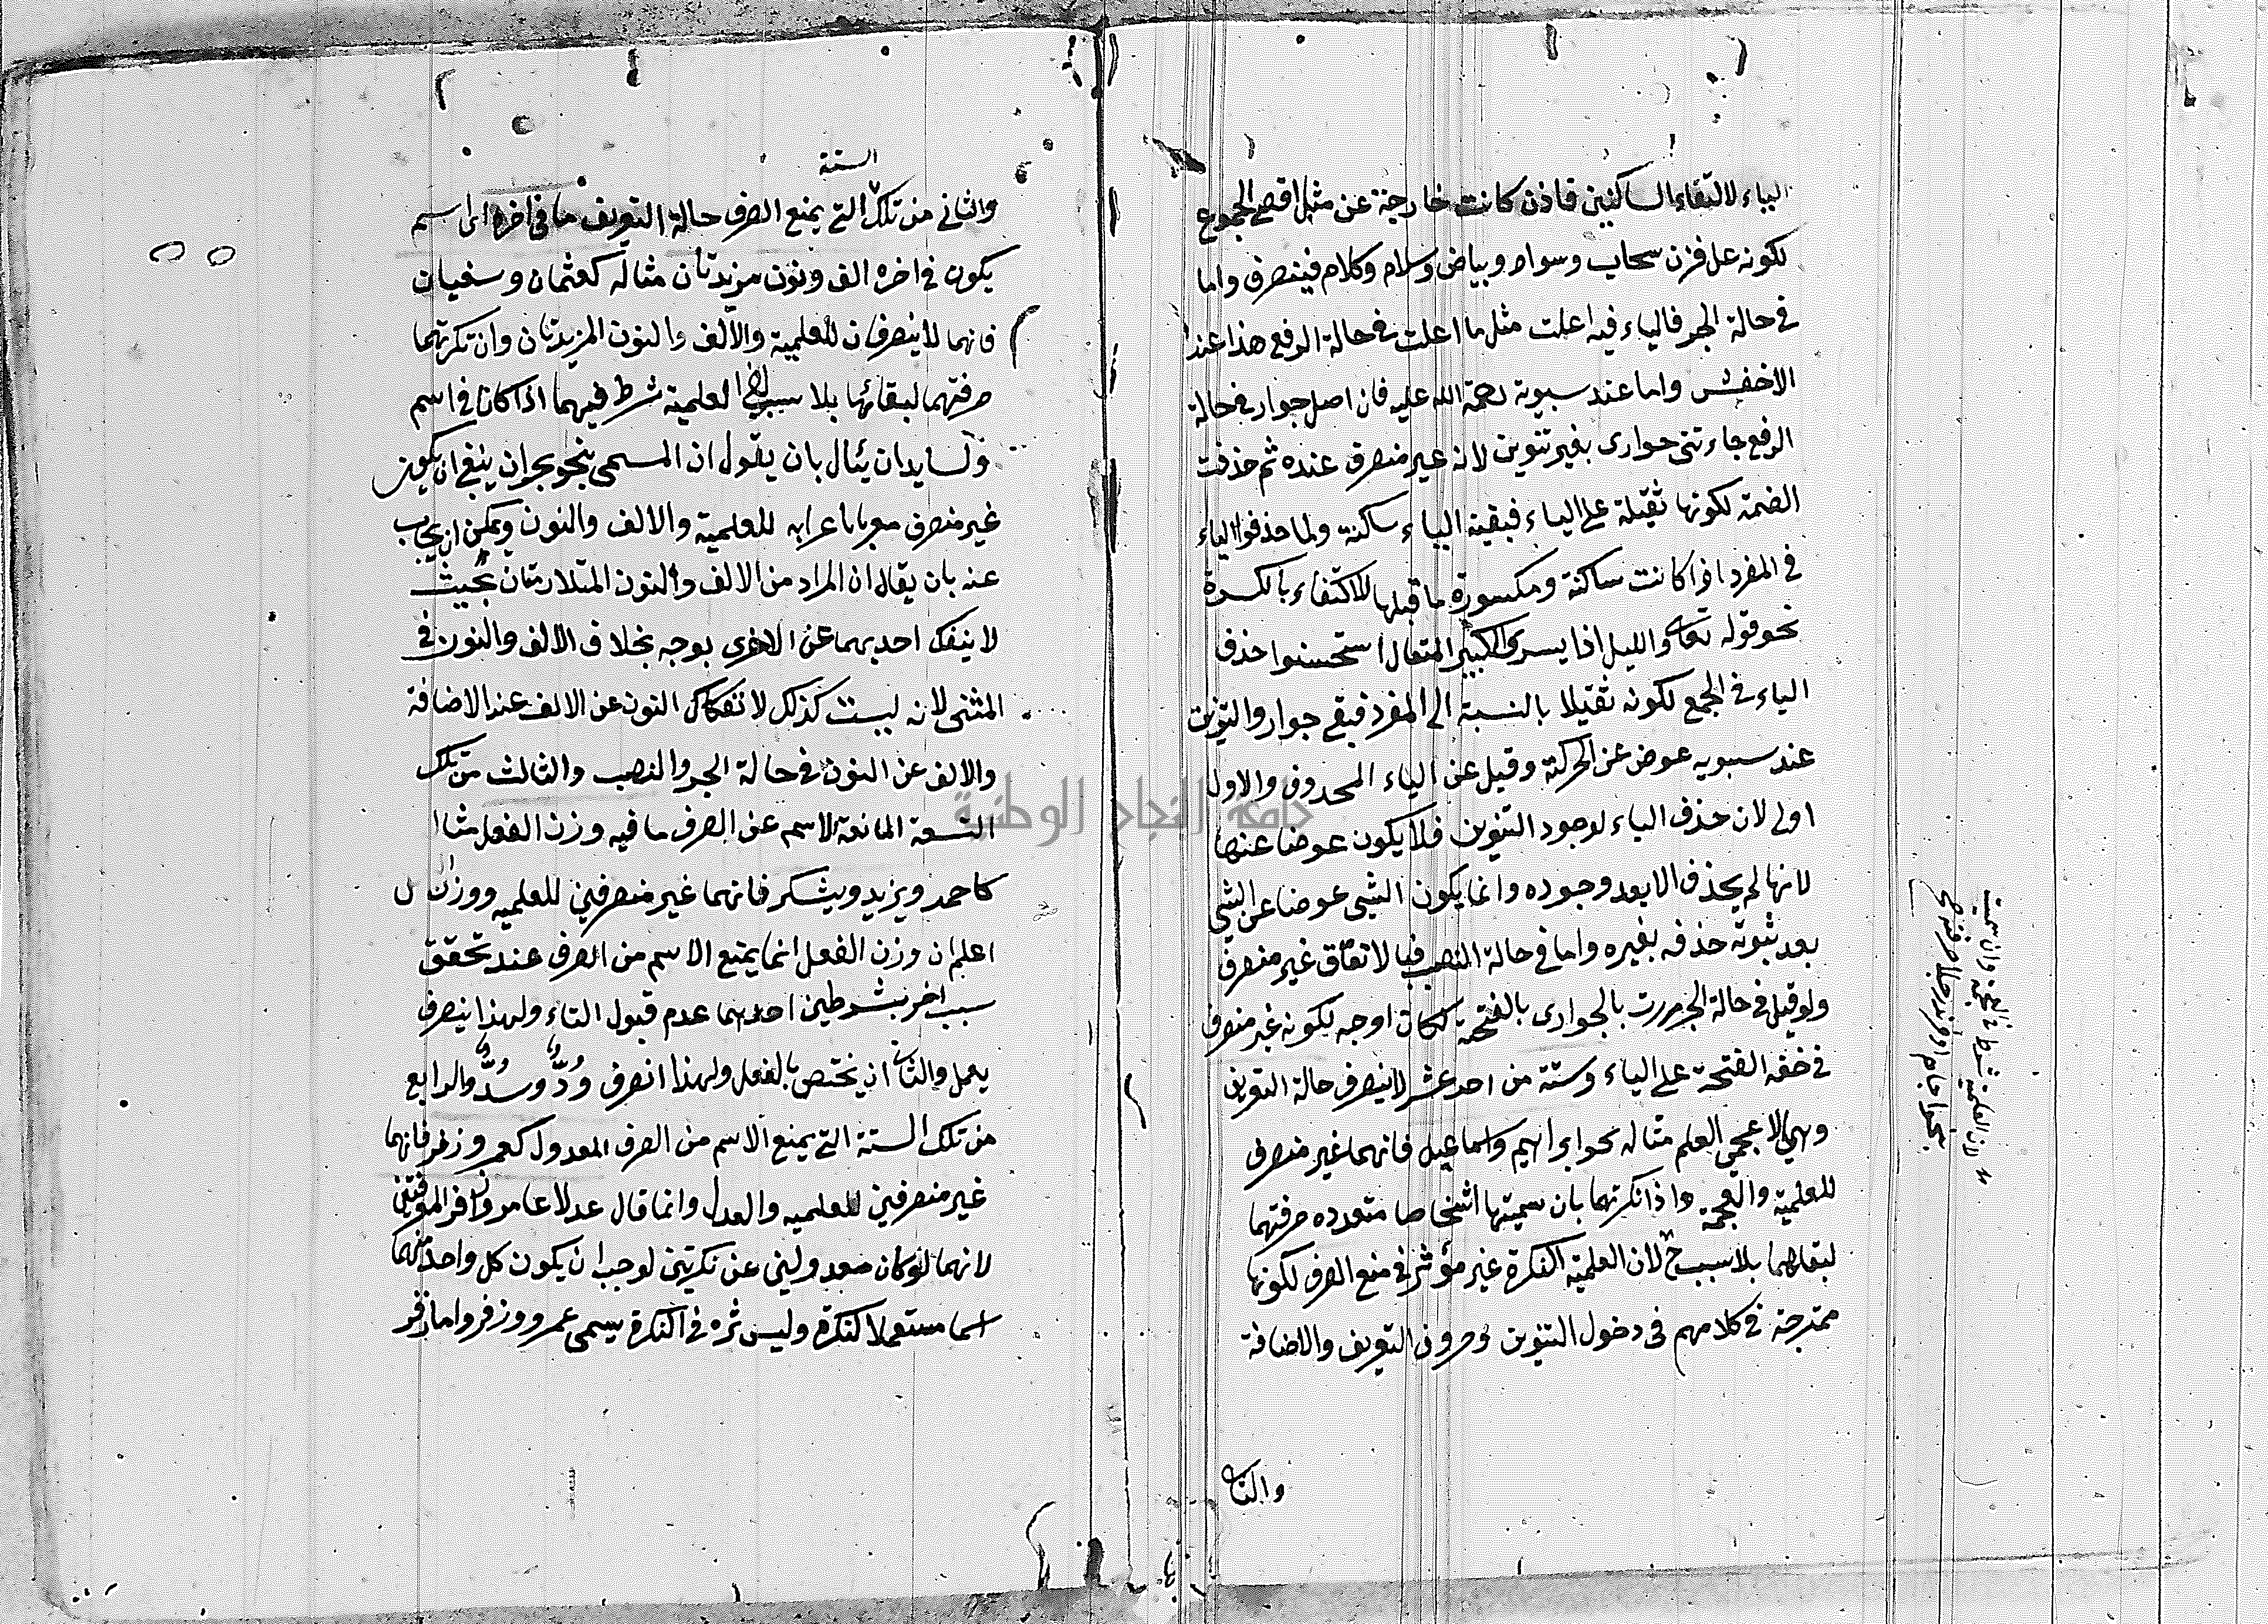 الياء لالتقاء الساكنين فاذن كانت خارجة عن مثل اقصى الجموع
لكونه على وزن سحاب وسواد وبياض وسلام وكلام فينصرف واما
في حالة الجر فالياء فيه اعلت مثل ما اعلت في حالة الرفع هذا عند
الاخفش واما عند سبويه رحمة الله عليه فان اصل جوار في حالة
الرفع جاءتنى جوارى بغير تنوين لانه غير منصرف عنده ثم حذفت
الضمة لكونها ثقيلة على الياء فبقية الياء ساكنة ولما حذفوا الياء
في المفرد اذا كانت ساكنة ومكسورة ما قبلها للاكتفاء بالكسرة
نحو قوله تعالى والليل اذا يسر والكبير المتعال استحسنوا حذف
الياء في الجمع لكونه ثقيلا بالنسبة الى المفرد فبقى جوار والتنوين
عند سبويه عوض عن الحركة وقيل عن الياء المحذوف والاول
اولى لان حذف الياء لوجود التنوين فلا يكون عوضا عنها
لانها لم يحذف الا بعد وجوده وانما يكون الشيى عوضا عن الشيى
بعد ثبوته حذفه بغيره واما في حالة النصب فبالاتفاق غير منصرف
ولو قيل في حالة الجر مررت بالجوارى بالفتحة لكان اوجه لكونه غير منصرف
في خفة الفتحة على الياء وستة من احد عشر لا ينصرف حالة التعريف
وهي الاعجمى العلم مثاله نحو ابراهيم واسماعيل فانهما غير منصرف
للعلمية والعجمة واذا نكرتهما بان سميتها اشخاصا متعدده صرفتهما
لبقائهما بلا سبب ح لان العلمية النكرة غير مؤثر في منع الصرف لكونها
ممتزجة في كلامهم في دخول التنوين وحروف التعريف والاضافة
والثانى
لان العلمية شرط في العجمة وان سميت
بنحو لجام او فرند رجلا صرفته ح
الستة
والثانى من تلك التى يمنع الصرف حالة التعريف ما في اخره اى اسم
يكون في اخره الف ونون مزيدتان مثاله كعثمان وسفيان
فانهما لا ينصرفان للعلمية والالف والنون المزيدتان وان نكرتهما
صرفتهما لبقائها بلا سبب العلمية شرط فيهما اذا كانا في اسم
ولسايدان يسأل بان يقول ان المسمى بنحو بحران ينبغى ان يكون
غير منصرف معربا باعرابه للعلمية والالف والنون ويمكن ان يجاب
عنه بان يقال ان المراد من الالف والنون المتلازمتان بحيث
لا ينفك احديهما عن الاخرى بوجه بخلاف الالف والنون في
المثنى لانه ليست كذلك لانفكاك النون عن الالف عند الاضافة
والالف عن النون في حالة الجر والنصب والثالث من تلك
التسعة المانعة الاسم عن الصرف ما فيه وزن الفعل مثال
كاحمد ويزيد ويشكر فانهما غير منصرفين للعلميه ووزن
اعلم ان وزن الفعل انما يمنع الاسم من الصرف عند تحقق
سبب اخر بشرطين احدهما عدم قبول التاء ولهذا ينصرف
يعمل والثانى ان يختص بالفعل ولهذا انصرف ردّ وسدّ والرابع
من تلك الستة التى يمنع الاسم من الصرف المعدول كعمر وزفر فانهما
غير منصرفين للعلميه والعدل وانما قال عدلا عامر وزافر المعرفتين
لانهما لو كان معدولين عن نكرتين لوجب ان يكون كل واحد منهما
اسما مستعملا كنكرة وليس ثمه في النكرة يسمى عمر وزفر واما زفر
جامعة النجاح الوطنية